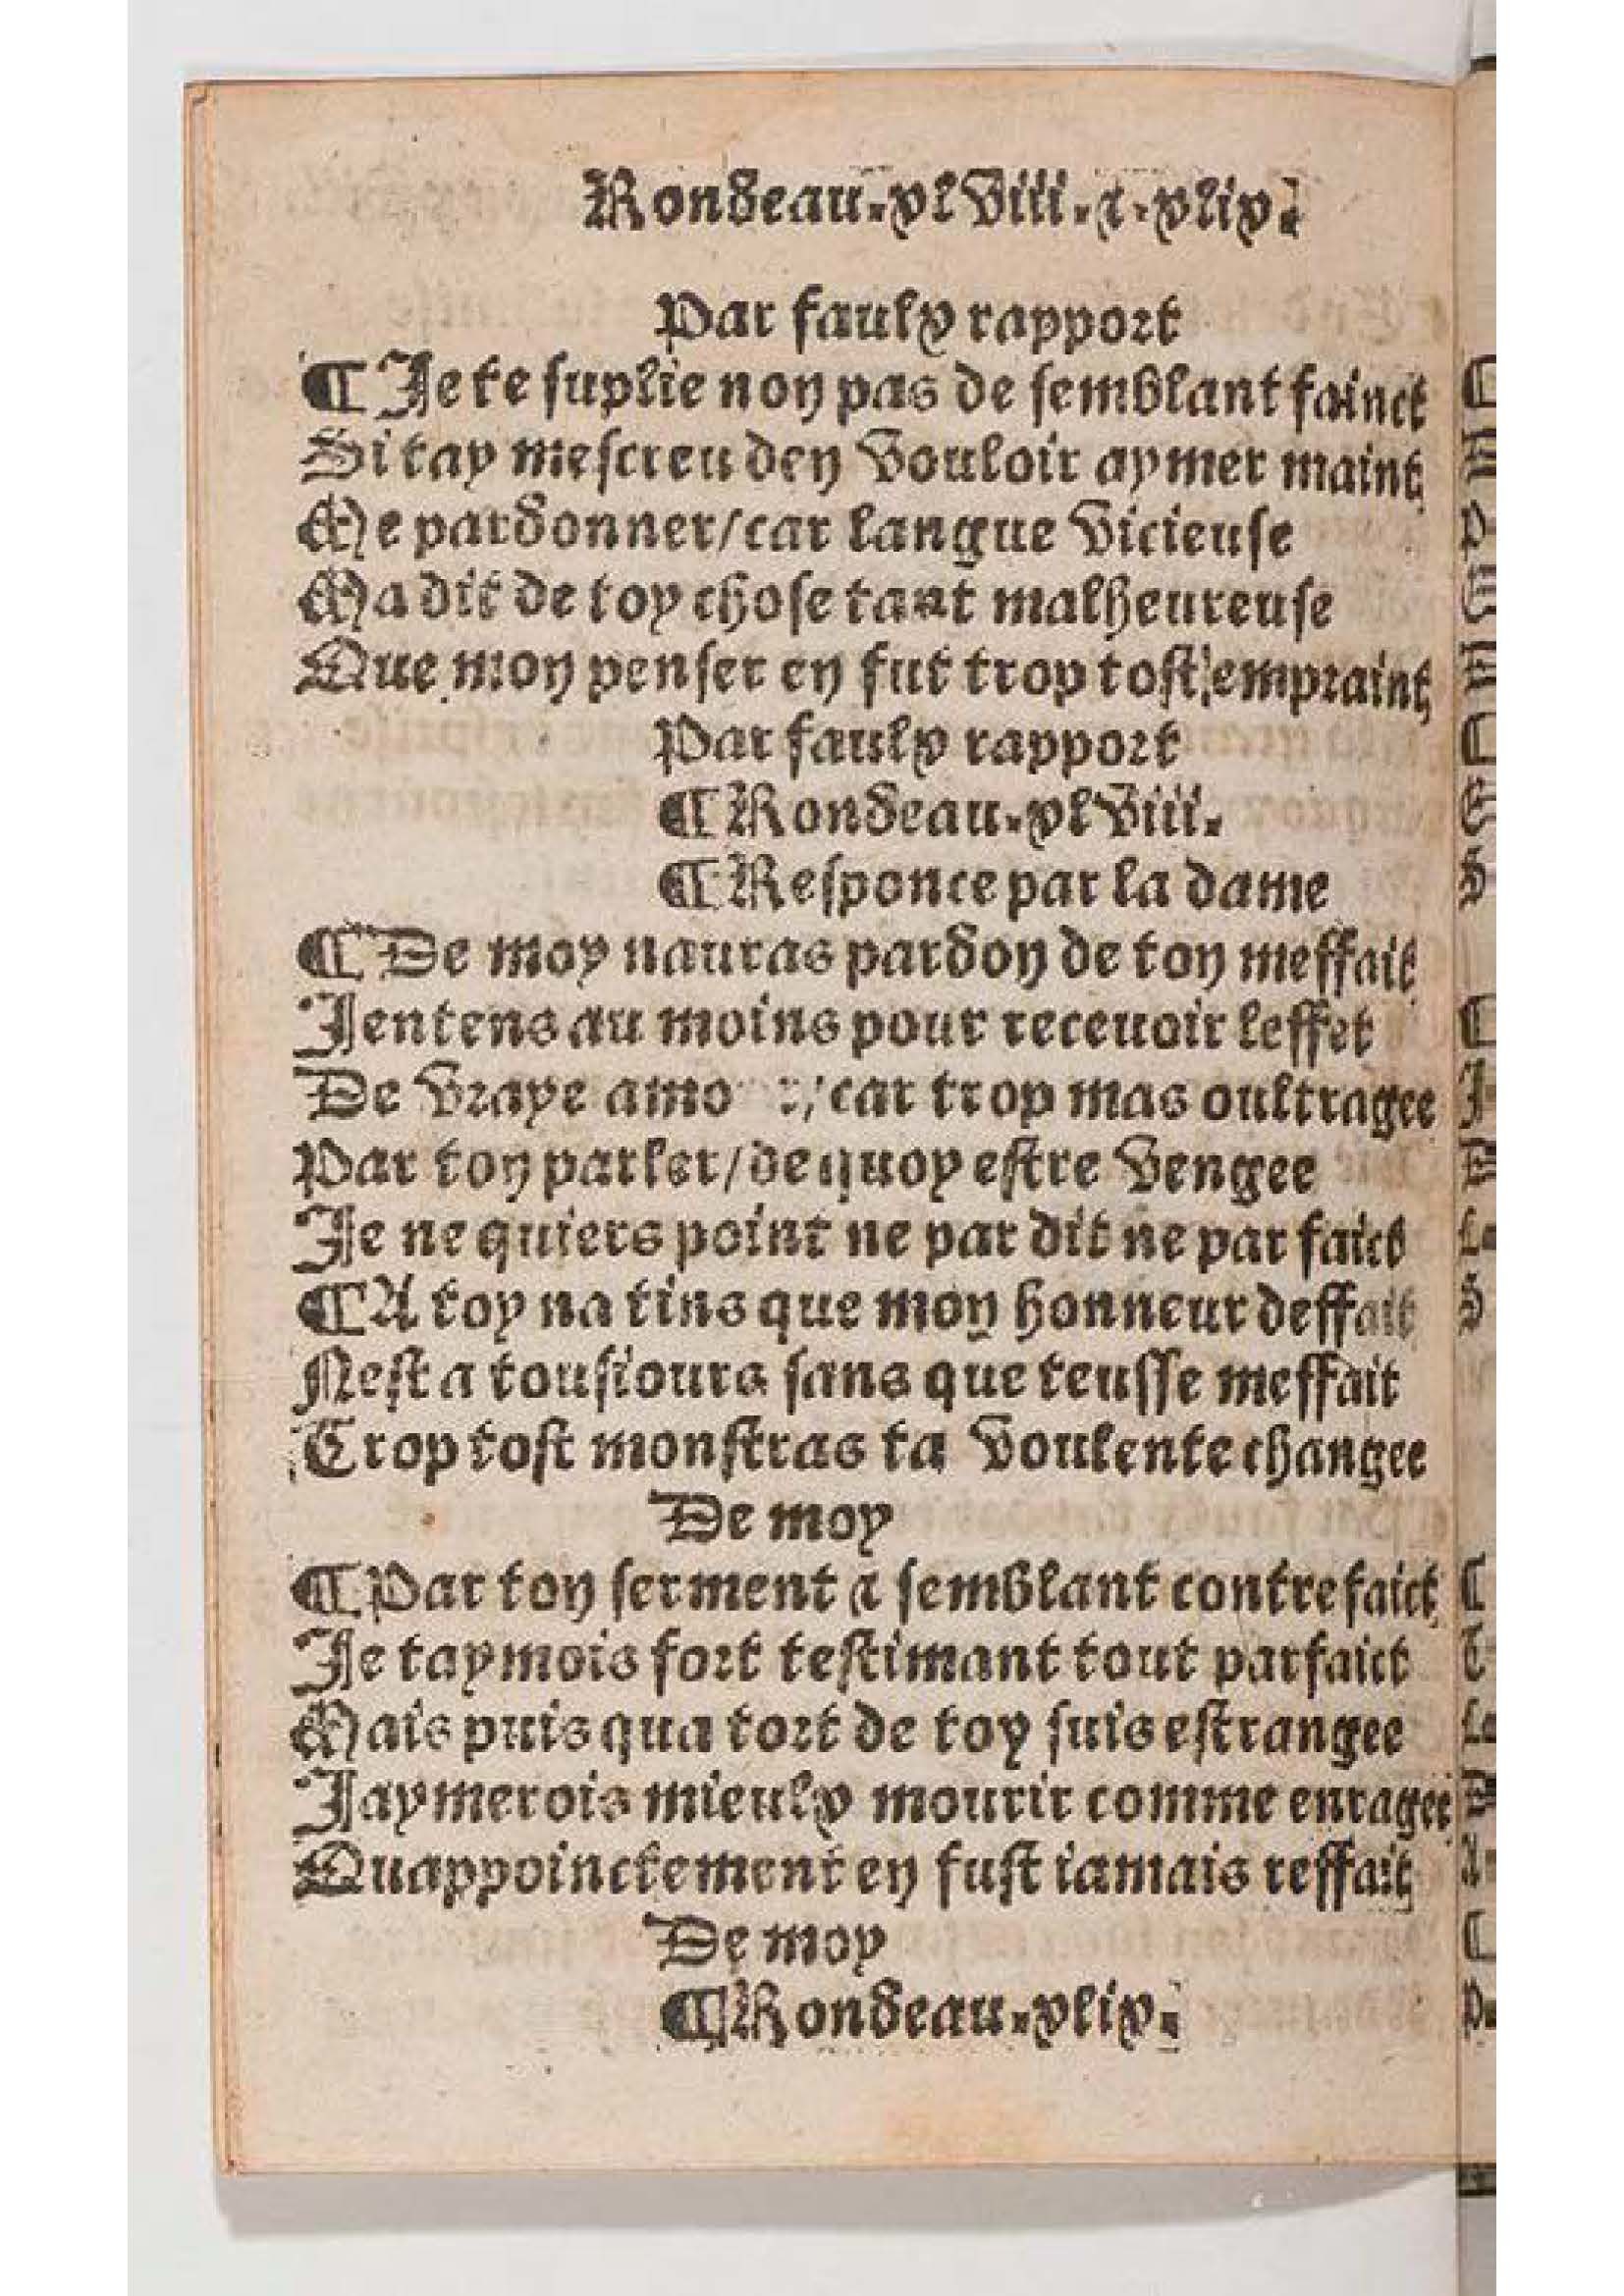 Rondeau. xlviii. & . xlix.
Par faulx rapport
¶ Je te suplie non pas de semblant fainct
Si tay mescreu den vouloir aymer maint
Me pardonner/car langue vicieuse
Ma dit de toy chose tant malheureuse
Que mon penser en fut trop tost empraint
Par faulx rapport
¶ Rondeau. xlviii.
¶ Responce par la dame
¶ De moy nauras pardon de ton meffait
Jentens au moins pour receuoir leffet
De vraye amo r/car trop mas oultragee
Par ton parler/de quoy estre vengee
Je ne quiers point ne par dit ne par faict
¶ A toy na tins que mon honneur deffait
Nest a tousiours sans que teusse meffait
Trop tost monstras ta voulente changee
De moy
¶ Par ton serment & semblant contrefaict
Je taymois fort testimant tout parfaict
Mais puis qua tort de toy suis estrangee
Jaymerois mieulx mourir comme enragee
Quappoinctement en fust iamais reffait
De moy
¶ Rondeau. xlix.